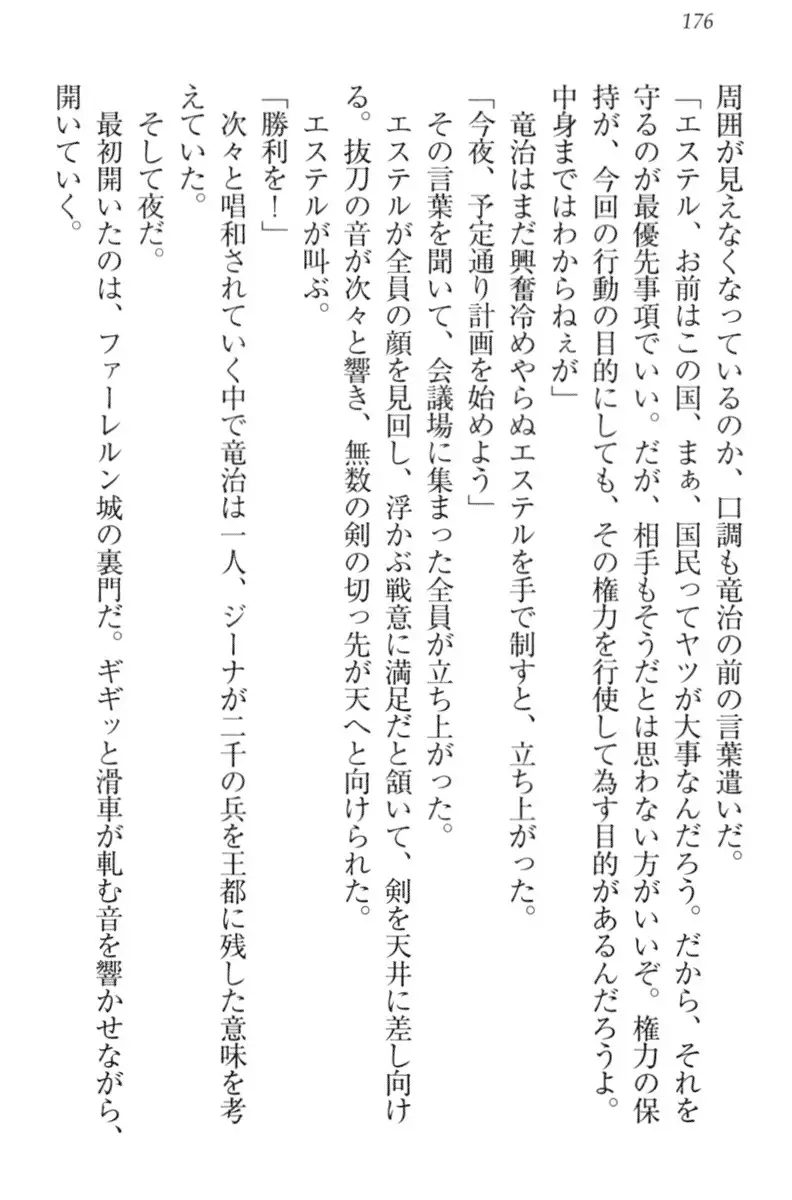 176
周囲が見えなくなっているのか、口調も竜治の前の言葉遣いだ。
「エステル、お前はこの国、まぁ、国民ってヤツが大事なんだろう。だから、それを
守るのが最優先事項でいい。だが、相手もそうだとは思わない方がいいぞ。権力の保
持が、今回の行動の目的にしても、その権力を行使して為す目的があるんだろうよ。
中身まではわからねぇが」
竜治はまだ興奮冷めやらぬエステルを手で制すと、立ち上がった。
「今夜、予定通り計画を始めよう」
その言葉を聞いて、会議場に集まった全員が立ち上がった。
エステルが全員の顔を見回し、浮かぶ戦意に満足だと頷いて、剣を天井に差し向け
る。抜刀の音が次々と響き、無数の剣の切っ先が天へと向けられた。
エステルが叫ぶ。
「勝利を！」
次々と唱和されていく中で竜治は一人、ジーナが二千の兵を王都に残した意味を考
えていた。
そして夜だ。
最初開いたのは、ファーレルン城の裏門だ。ギギッと滑車が軋む音を響かせながら、
開いていく。